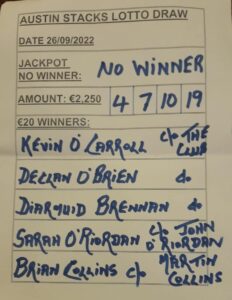 AUSTIN STACKS LOTTO DRAW
DATE 26/09/2022
JACKPOT
NO WINNER: NO WINNER
AMOUNT: €2,250 4 7 10 19
€20 WINNERS:
KEVIN O'CARROLL c/o THE CLUB
DECLAN O'BRIEN do
DIARMUID BRENNAN do
SARAH O'RIORDAN c/o JOHN O'RIORDAN
BRIAN COLLINS c/o MARTIN COLLINS